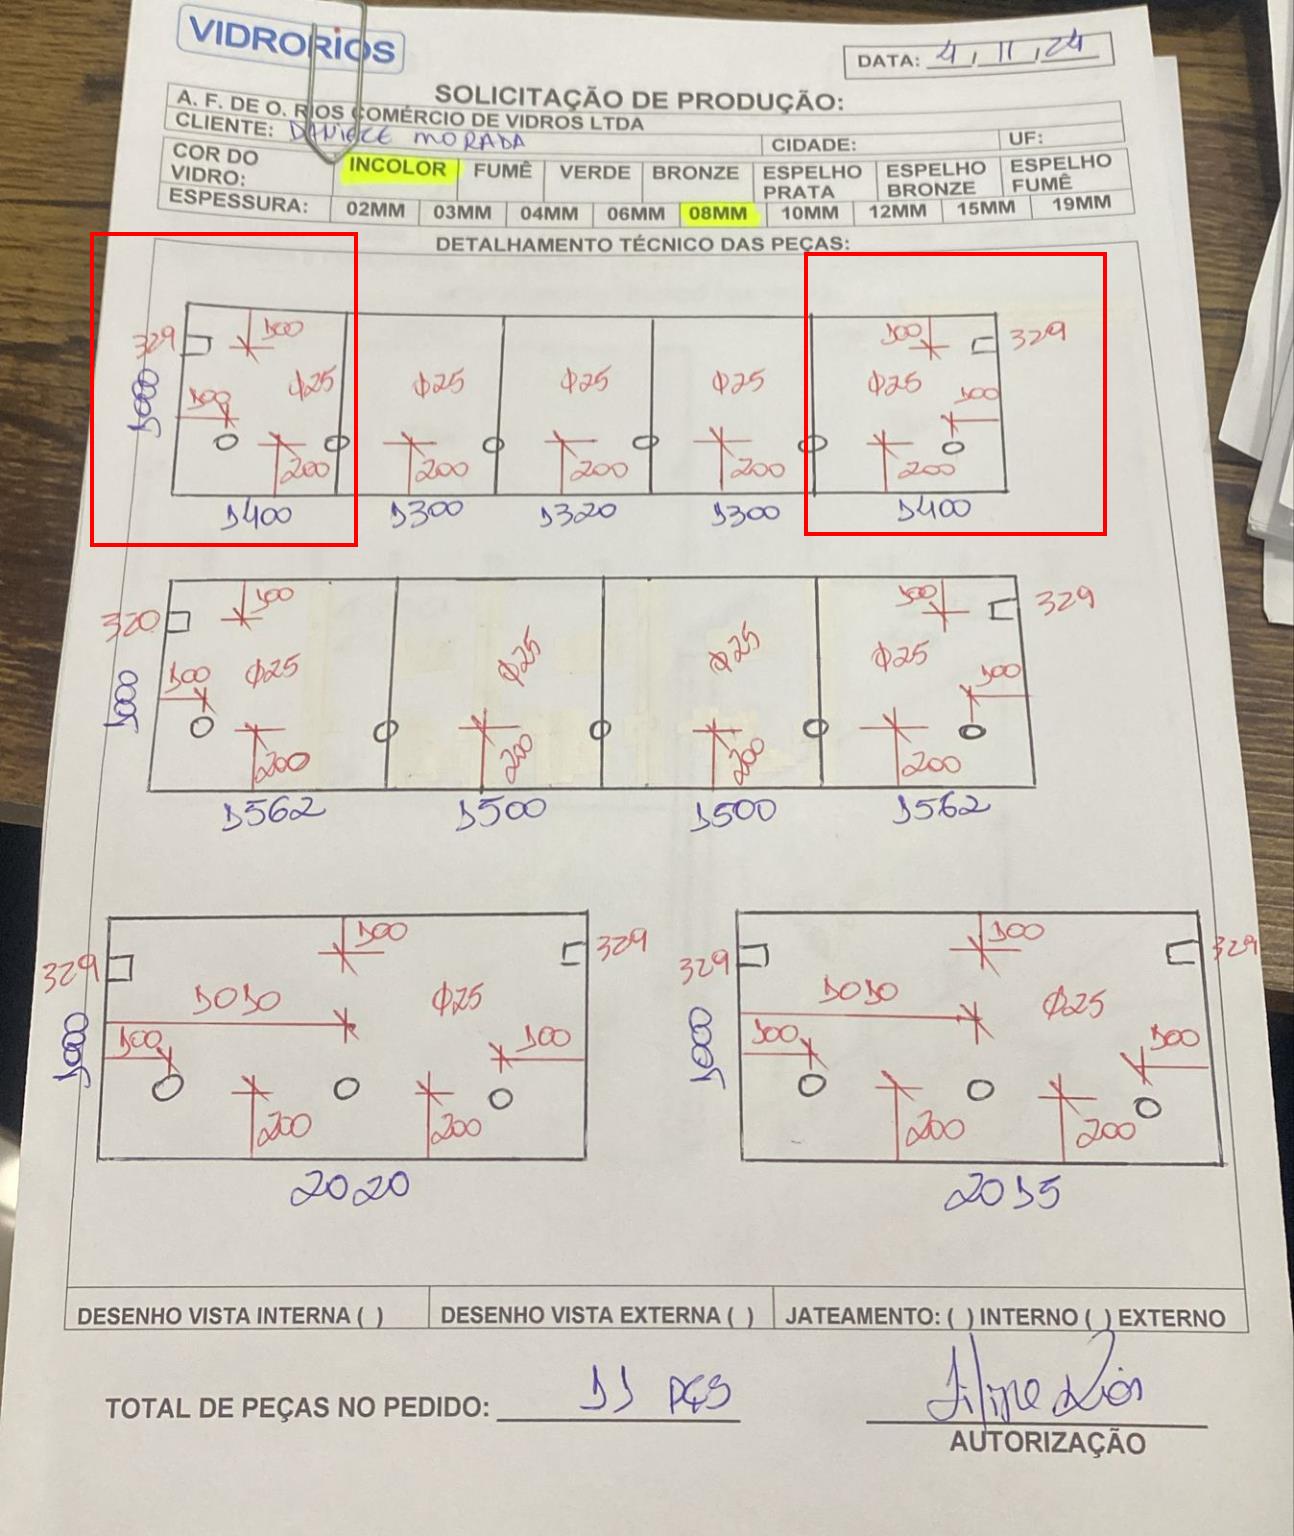 VIDRORIOS
DATA: 4, 11, 24
SOLICITAÇÃO DE PRODUÇÃO:
A. F. DE O. RIOS COMÉRCIO DE VIDROS LTDA
CLIENTE: MORADA CIDADE: UF:
COR DO VIDRO: INCOLOR FUMÊ VERDE BRONZE ESPELHO PRATA ESPELHO BRONZE ESPELHO FUMÊ
ESPESSURA: 02MM 03MM 04MM 06MM 08MM 10MM 12MM 15MM 19MM
DETALHAMENTO TÉCNICO DAS PEÇAS:
329 100 100 329
1000 100 Φ25 Φ25 Φ25 Φ25 Φ25 100
200 200 200 200 200
1400 1300 1320 1300 1400
320 100 100 329
1000 100 Φ25 Φ25 Φ25 Φ25 100
200 200 200 200
1562 1500 1500 1562
329 100 329 329 100 329
1010 Φ25 1010 Φ25
1000 100 100 1000 100 100
200 200 200 200
2020 2015
DESENHO VISTA INTERNA ( ) DESENHO VISTA EXTERNA ( ) JATEAMENTO: ( ) INTERNO ( ) EXTERNO
TOTAL DE PEÇAS NO PEDIDO: 11 PÇS Filipe Rios
AUTORIZAÇÃO